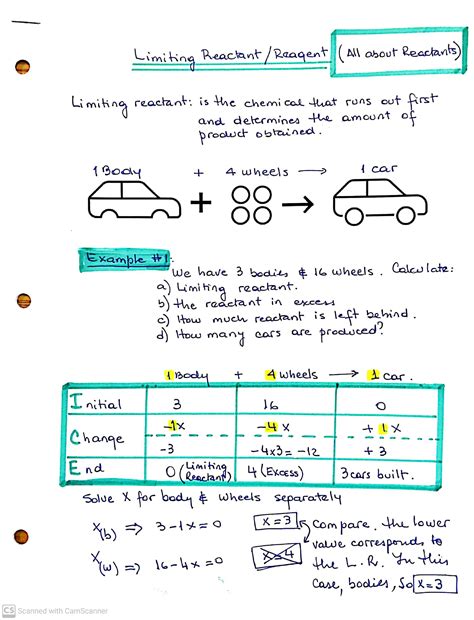 Limiting Reactant / Reagent (All about Reactants)
Limiting reactant: is the chemical that runs out first
and determines the amount of
product obtained.
1 Body + 4 wheels → 1 car
+ →
Example #1:
We have 3 bodies & 16 wheels. Calculate:
a) Limiting reactant.
b) the reactant in excess
c) How much reactant is left behind.
d) How many cars are produced?
1 Body + 4 wheels → 1 car.
Initial 3 16 0
Change -1x -4x +1x
-3 -4x3= -12 +3
End 0 (Limiting Reactant) 4 (Excess) 3 cars built.
Solve X for body & wheels separately
X(b) ⇒ 3-1x=0 x=3 Compare. the lower
value corresponds to
X(w) ⇒ 16-4x=0 x=4 the L.R. In this
case, bodies, So x=3
CS Scanned with CamScanner